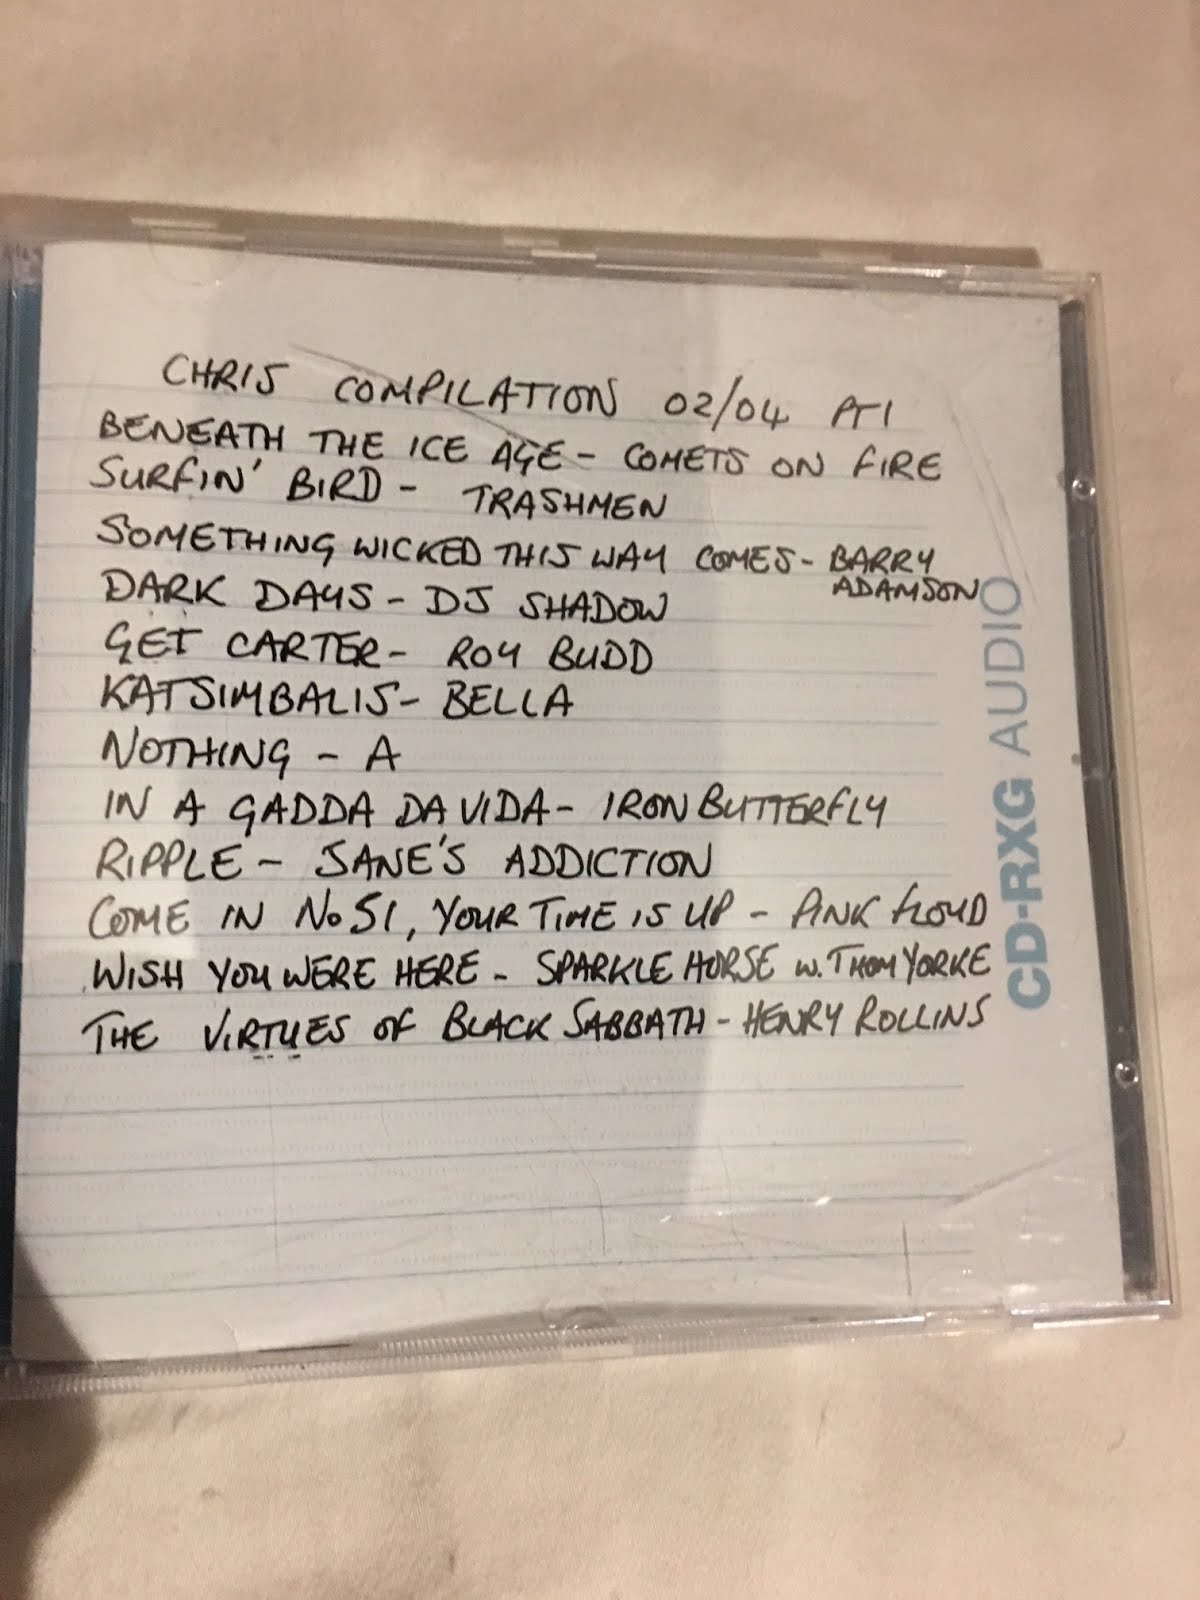 CHRIS COMPILATION 02/04 PT1
BENEATH THE ICE AGE - COMETS ON FIRE
SURFIN' BIRD - TRASHMEN
SOMETHING WICKED THIS WAY COMES - BARRY
ADAMSON
DARK DAYS - DJ SHADOW
GET CARTER - ROY BUDD
KATSIMBALIS - BELLA
NOTHING - A
IN A GADDA DA VIDA - IRON BUTTERFLY
RIPPLE - JANE'S ADDICTION
COME IN No 51, YOUR TIME IS UP - PINK FLOYD
WISH YOU WERE HERE - SPARKLE HORSE W. THOM YORKE
THE VIRTUES OF BLACK SABBATH - HENRY ROLLINS
CD-RXG AUDIO